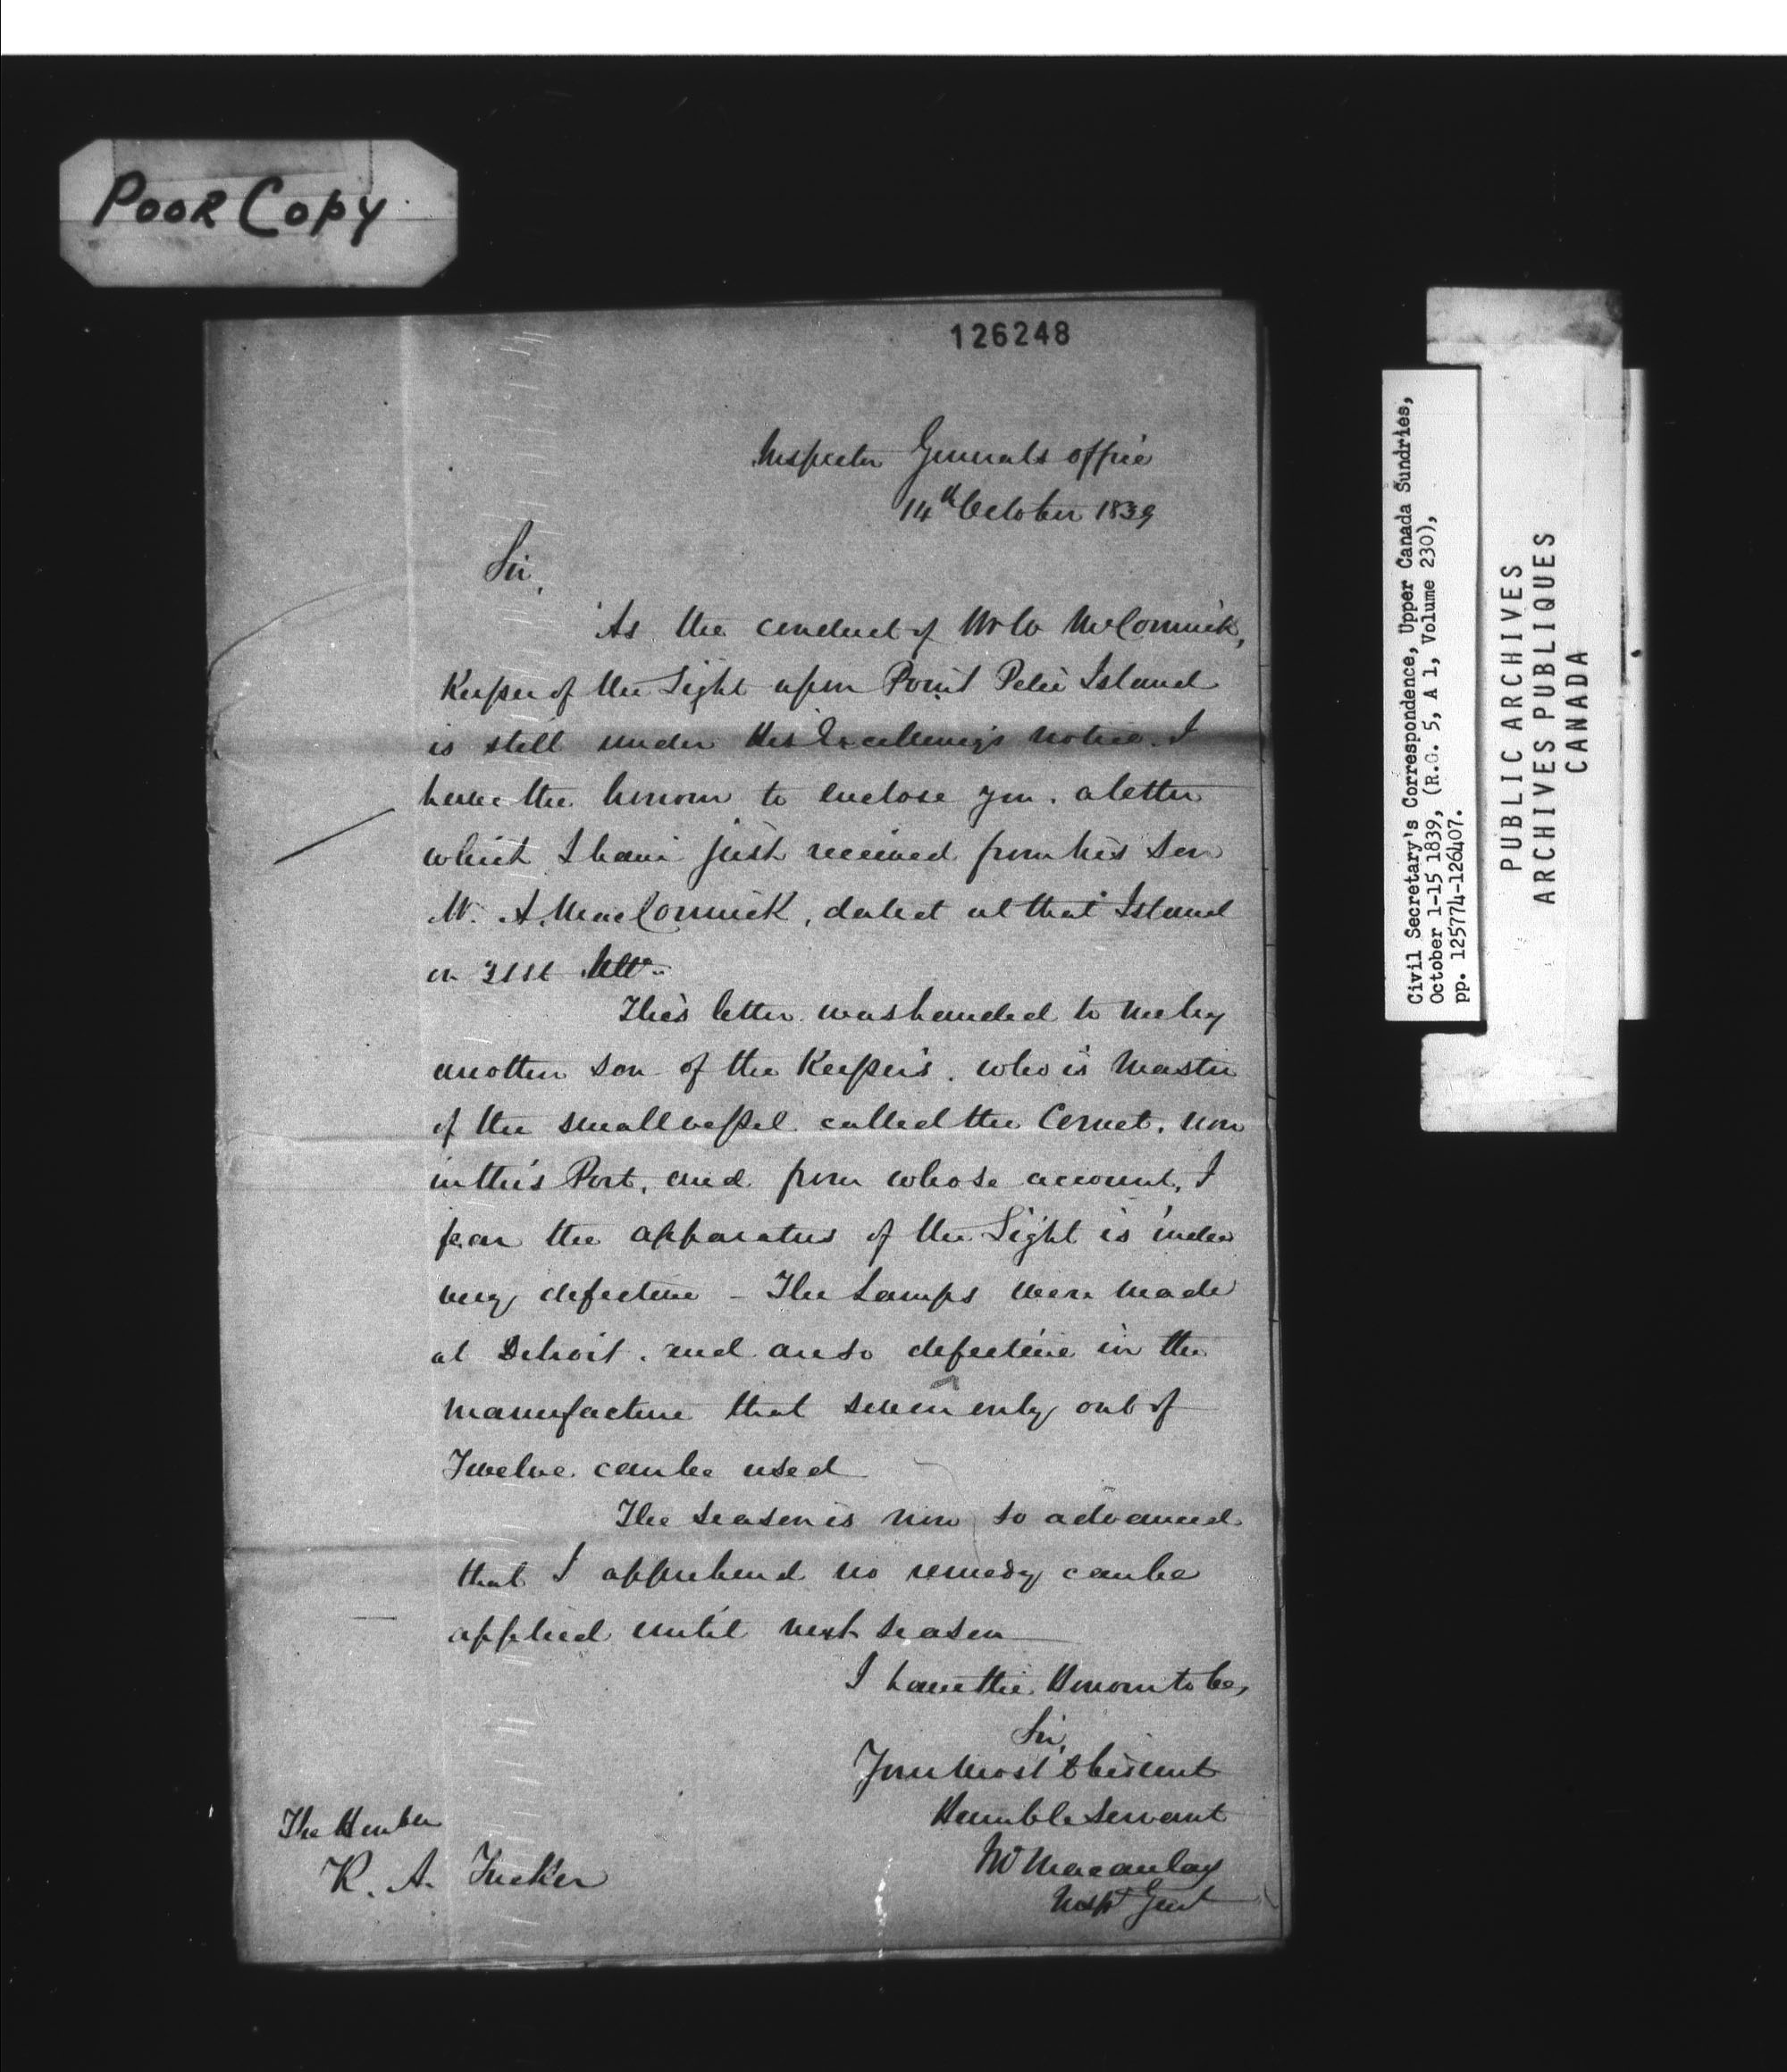 POOR COPY
126248
Inspector Generals office
14th October 1839
Sir,
As the conduct of Mr W McCormick,
Keeper of the Light upon Point Pelee Island
is still under His Excellency's notice. I
have the honour to enclose you. a letter
which I have just received from his son
W. A. MacCormick, dated at that Island
on 21st Ulto.
This letter was handed to me by
another son of the Keeper's. who is Master
of the small vessel called the Comet. now
in this Port, and from whose account, I
fear the apparatus of the Light is indeed
very defective - The Lamps were made
at Detroit. and are so defective in the
manufacture that seven only out of
Twelve can be used
The season is now so advanced
that I apprehend no remedy can be
applied until next season
I have the Honour to be,
Sir,
Your Most Obedient
Humble Servant
Macaulay
Insp Genl
The Honble
R. A. Tucker
Civil Secretary's Correspondence, Upper Canada Sundries,
October 1-15 1839, (R.G. 5, A 1, Volume 230),
pp. 125774-126407.
PUBLIC ARCHIVES
ARCHIVES PUBLIQUES
CANADA